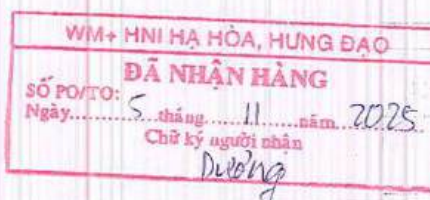 WM+ HNI HẠ HÒA, HƯNG ĐẠO
ĐÃ NHẬN HÀNG
SỐ PO/TO:
Ngày......5...tháng......11......năm...2025
Chữ ký người nhân
Dương